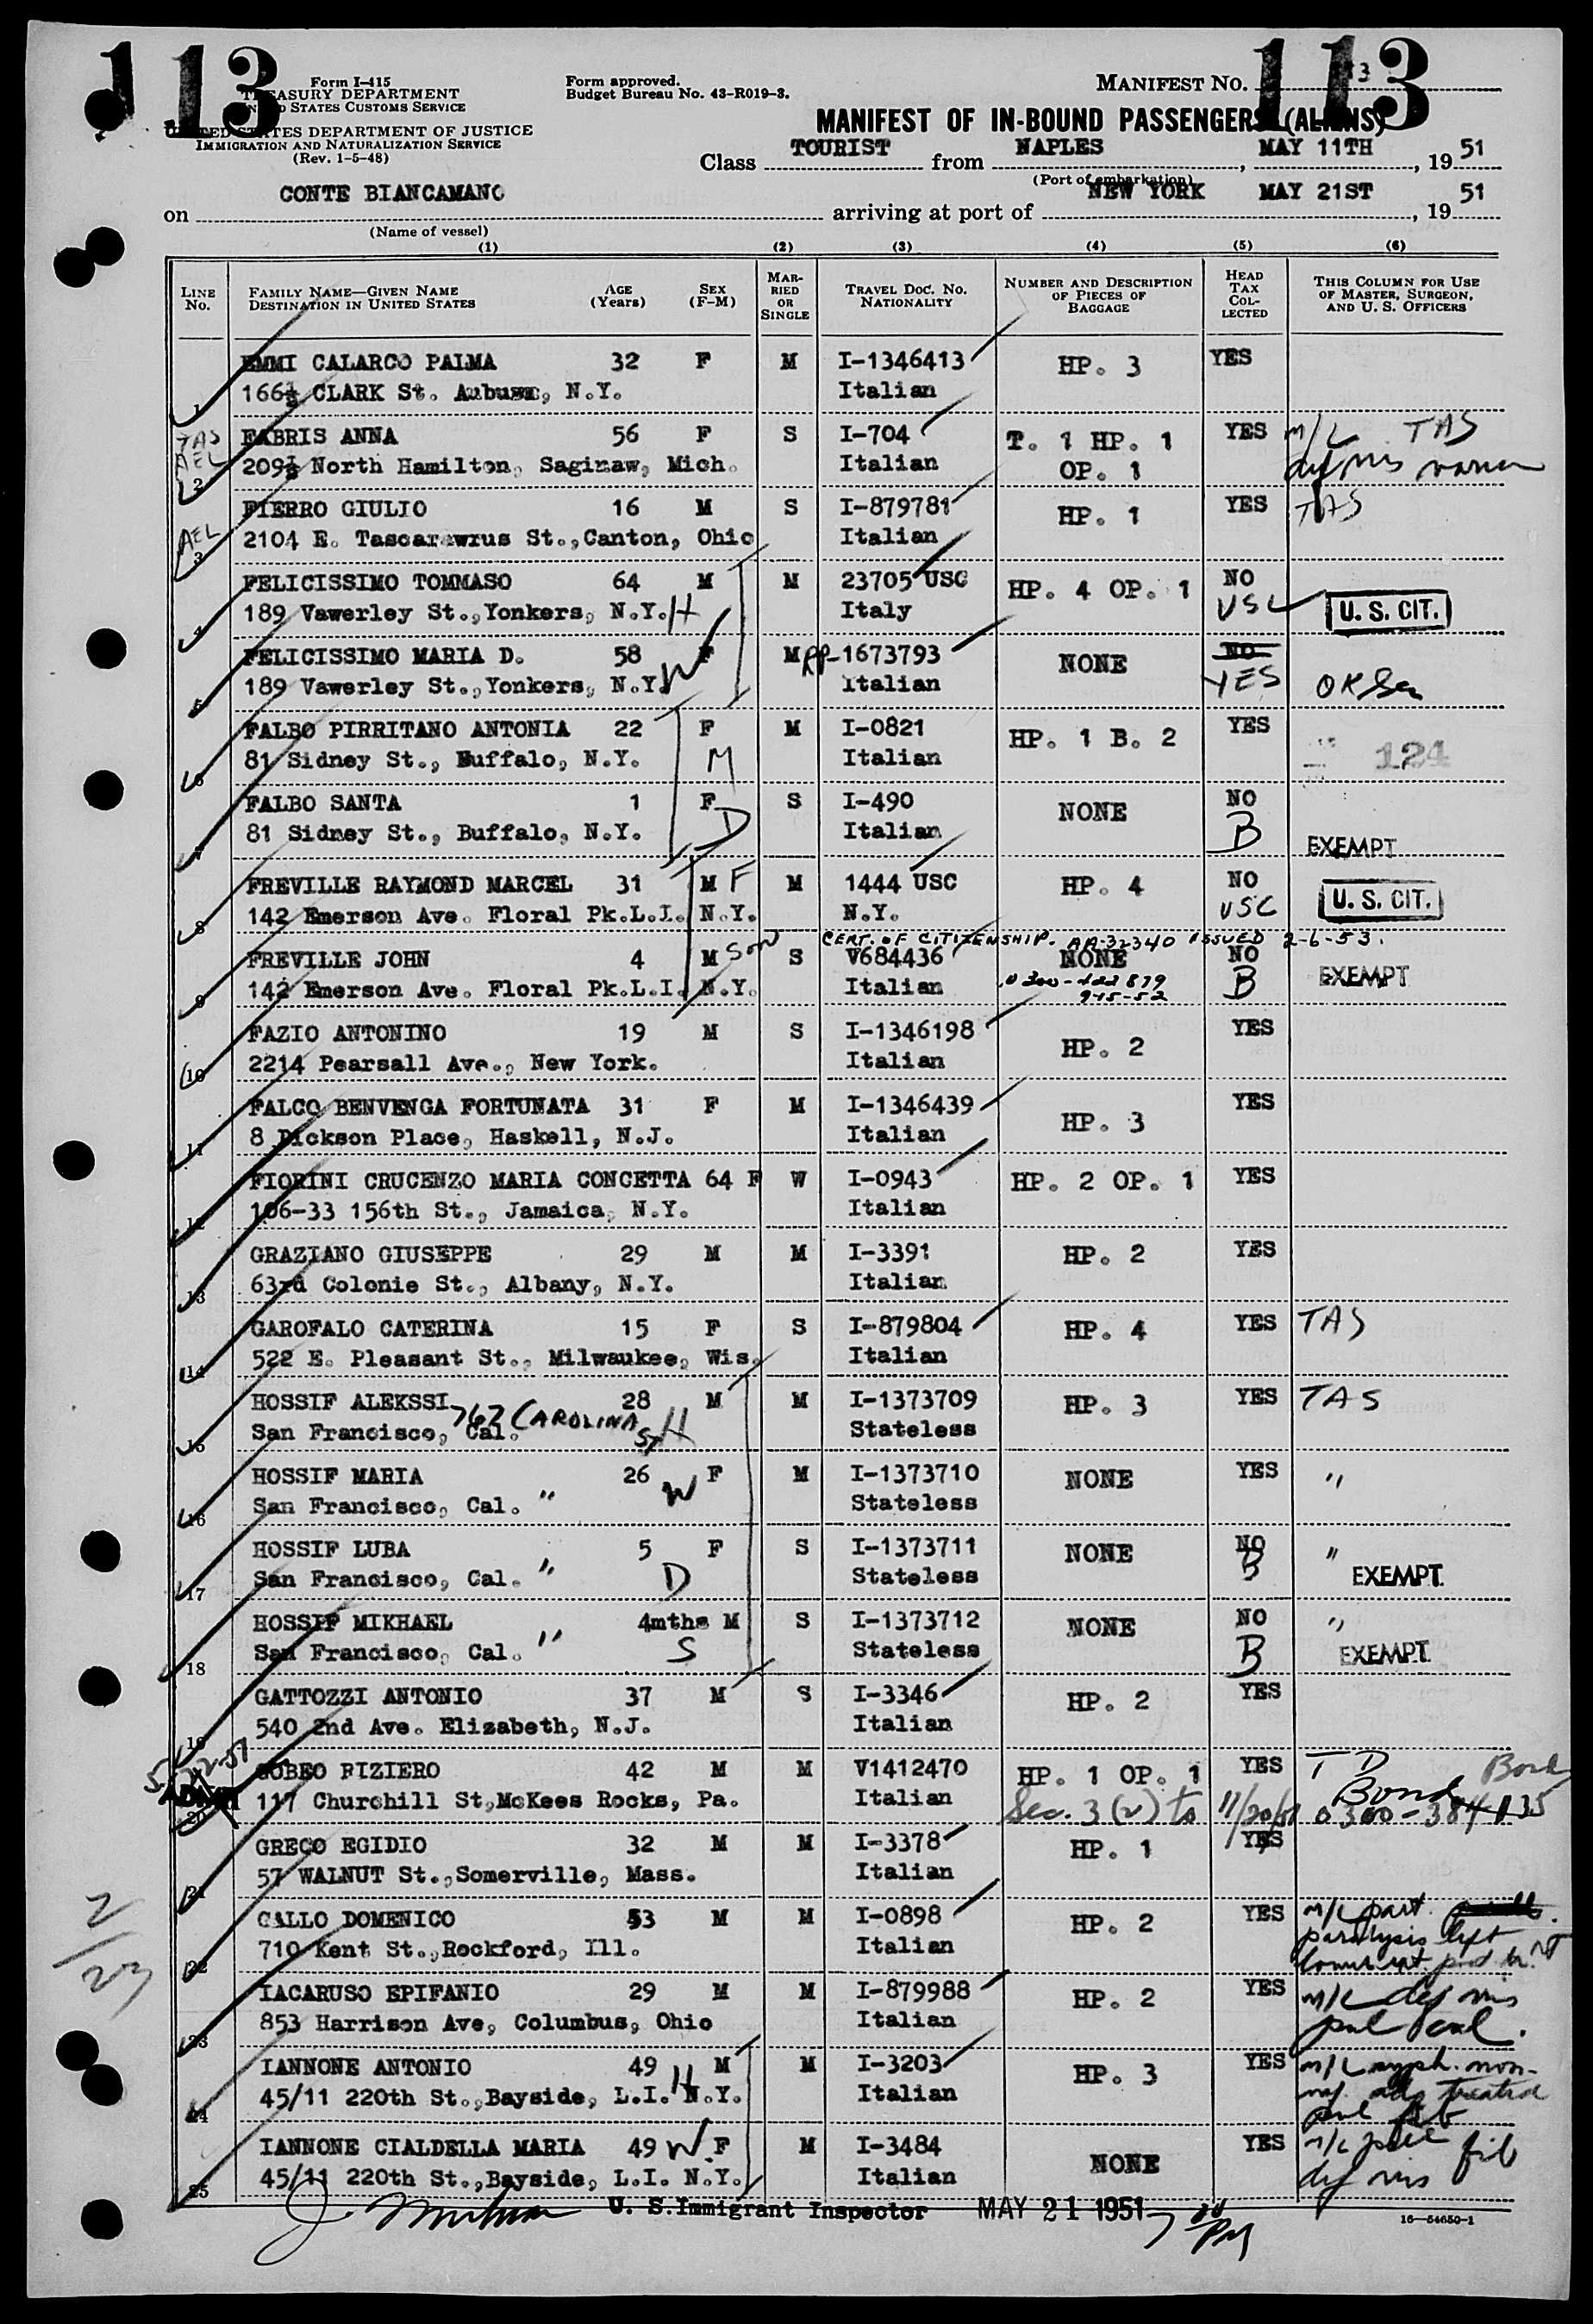 113 113
Form I-415
TREASURY DEPARTMENT
UNITED STATES CUSTOMS SERVICE
UNITED STATES DEPARTMENT OF JUSTICE
IMMIGRATION AND NATURALIZATION SERVICE
(Rev. 1-5-48)
Form approved.
Budget Bureau No. 43-R019-3.
MANIFEST NO.
MANIFEST OF IN-BOUND PASSENGERS (ALIENS)
Class TOURIST from NAPLES, MAY 11TH, 19 51
(Port of embarkation)
on CONTE BIANCAMANO arriving at port of NEW YORK MAY 21ST, 19 51
(Name of vessel)
(1) (2) (3) (4) (5) (6)
LINE NO. FAMILY NAME—GIVEN NAME DESTINATION IN UNITED STATES AGE (Years) SEX (F-M) MARRIED OR SINGLE TRAVEL DOC. NO. NATIONALITY NUMBER AND DESCRIPTION OF PIECES OF BAGGAGE HEAD TAX COLLECTED THIS COLUMN FOR USE OF MASTER, SURGEON, AND U. S. OFFICERS
1 EMMI CALARCO PALMA 32 F M I-1346413 HP. 3 YES
166½ CLARK St. Auburn, N.Y. Italian
TAS AEL 2 FABRIS ANNA 56 F S I-704 T. 1 HP. 1 YES M/C TAS
209½ North Hamilton, Saginaw, Mich. Italian OP. 1
AEL 3 FIERRO GIULIO 16 M S I-879781 HP. 1 YES TAS
2104 E. Tascarawrus St., Canton, Ohio Italian
4 FELICISSIMO TOMMASO 64 M M 23705 USC HP. 4 OP. 1 NO
189 Vawerley St., Yonkers, N.Y. H Italy USC U. S. CIT.
5 FELICISSIMO MARIA D. 58 F M RP-1673793 NONE NO
189 Vawerley St., Yonkers, N.Y. W Italian YES OK
6 FALBO PIRRITANO ANTONIA 22 F M I-0821 HP. 1 B. 2 YES
81 Sidney St., Buffalo, N.Y. M Italian 124
7 FALBO SANTA 1 F S I-490 NONE NO
81 Sidney St., Buffalo, N.Y. D Italian B EXEMPT
8 FREVILLE RAYMOND MARCEL 31 M F M 1444 USC HP. 4 NO
142 Emerson Ave. Floral Pk.L.I. N.Y. N.Y. USC U. S. CIT.
CERT. OF CITIZENSHIP. AA-32340 ISSUED 2-6-53.
9 FREVILLE JOHN 4 M SON S V684436 NONE NO
142 Emerson Ave. Floral Pk.L.I. N.Y. Italian B EXEMPT
10 FAZIO ANTONINO 19 M S I-1346198 HP. 2 YES
2214 Pearsall Ave., New York. Italian
11 FALCO BENVENGA FORTUNATA 31 F M I-1346439 HP. 3 YES
8 Dickson Place, Haskell, N.J. Italian
12 FIORINI CRUCENZO MARIA CONCETTA 64 F W I-0943 HP. 2 OP. 1 YES
106-33 156th St., Jamaica, N.Y. Italian
13 GRAZIANO GIUSEPPE 29 M M I-3391 HP. 2 YES
63rd Colonie St., Albany, N.Y. Italian
14 GAROFALO CATERINA 15 F S I-879804 HP. 4 YES TAS
522 E. Pleasant St., Milwaukee, Wis. Italian
15 HOSSIF ALEKSSI 28 M M I-1373709 HP. 3 YES TAS
San Francisco, Cal. 767 CAROLINA ST H Stateless
16 HOSSIF MARIA 26 F M I-1373710 NONE YES "
San Francisco, Cal. " W Stateless
17 HOSSIF LUBA 5 F S I-1373711 NONE NO "
San Francisco, Cal. " D Stateless B EXEMPT
18 HOSSIF MIKHAEL 4mths M S I-1373712 NONE NO "
San Francisco, Cal. " S Stateless B EXEMPT
19 GATTOZZI ANTONIO 37 M S I-3346 HP. 2 YES
540 2nd Ave. Elizabeth, N.J. Italian
5-22-51 ADMIT 20 GOBEO PIZIERO 42 M M V1412470 HP. 1 OP. 1 YES T D Bond
117 Churchill St, McKees Rocks, Pa. Italian Sec. 3(2) to 11/20/51 Bond 0300-384135
21 GRECO EGIDIO 32 M M I-3378 HP. 1 YES
57 WALNUT St., Somerville, Mass. Italian
22 GALLO DOMENICO 53 M M I-0898 HP. 2 YES M/C part.
710 Kent St., Rockford, Ill. Italian paralysis left
2/23
23 IACARUSO EPIFANIO 29 M M I-879988 HP. 2 YES M/C def vis
853 Harrison Ave, Columbus, Ohio Italian
24 IANNONE ANTONIO 49 M M I-3203 HP. 3 YES M/C syph. non-
45/11 220th St., Bayside, L.I. N.Y. H Italian treated
25 IANNONE CIALDELLA MARIA 49 W F M I-3484 NONE YES M/C pul fib
45/11 220th St., Bayside, L.I. N.Y. Italian def vis
U. S. Immigrant Inspector MAY 21 1951 PM
16—54650-1